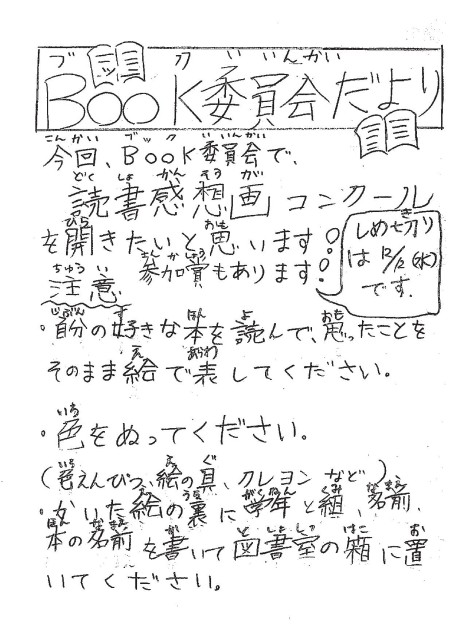 BOOK委員会だより
今回、BOOK委員会で、
読書感想画コンクール
を開きたいと思います!
参加賞もあります!
しめ切り
は12/12(水)
です.
注意
・自分の好きな本を読んで、思ったことを
そのまま絵で表してください。
・色をぬってください。
(色えんぴつ、絵の具、クレヨンなど)
・かいた絵の裏に学年と組、名前、
本の名前を書いて図書室の箱に置
いてください。